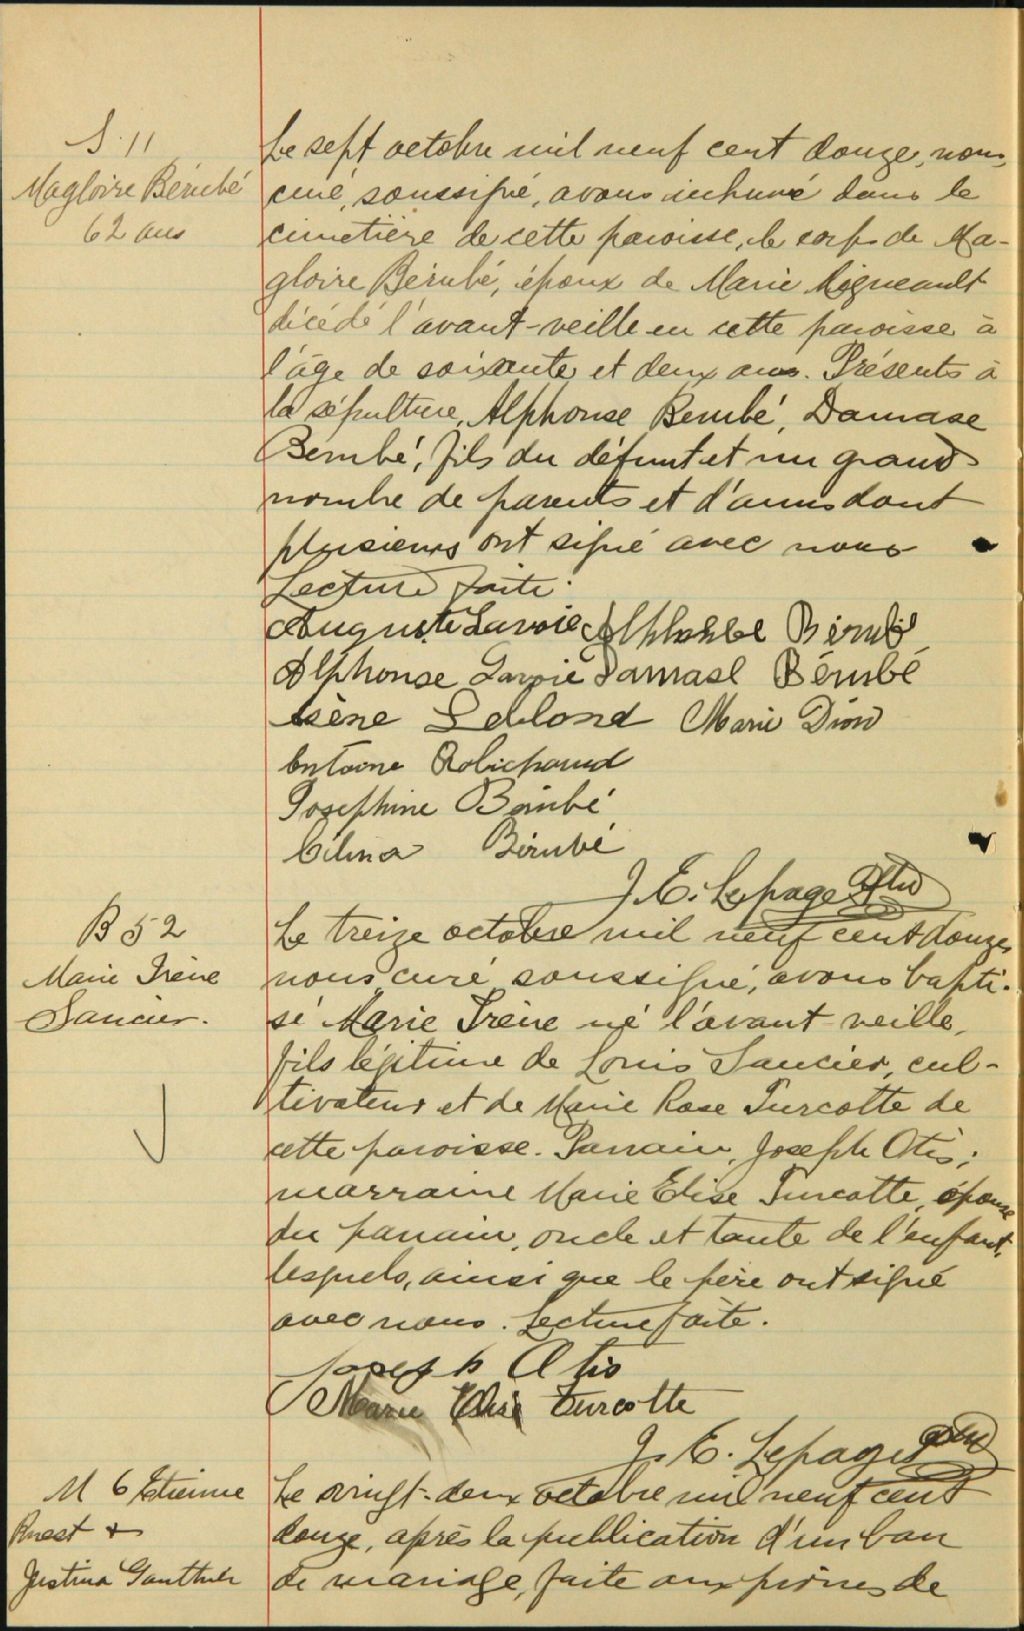 S. 11
Magloire Bérubé
62 ans
Le sept octobre mil neuf cent douze, nous,
curé, soussigné, avons inhumé dans le
cimetière de cette paroisse, le corps de Ma-
gloire Bérubé, époux de Marie Migneault
décédé l'avant-veille en cette paroisse à
l'âge de soixante et deux ans. Présents à
la sépulture, Alphonse Berubé, Damase
Berubé, fils du défunt et un grand
nombre de parents et d'amis dont
plusieurs ont signé avec nous
Lecture faite.
Auguste Lavoie Alphonse Bérubé
Alphonse Lavoie Damase Bérubé
Leblond Marie Dion
Antoine Robichaud
Josephine Bérubé
Célina Bérubé
J. E. Lepage Ptre
B 52
Marie Irène
Saucier.
Le treize octobre mil neuf cent douze,
nous, curé soussigné, avons bapti-
sé Marie Irène né l'avant veille,
fils légitime de Louis Saucier, cul-
tivateur et de Marie Rose Turcotte de
cette paroisse. Parrain, Joseph Otis;
marraine Marie Elise Turcotte, épouse
du parrain, oncle et tante de l'enfant,
lesquels, ainsi que le père ont signé
avec nous. Lecture faite.
Joseph Otis
Marie Elise Turcotte
J. E. Lepage Ptre
M 6 Etienne
Ruest &
Justina Gauthier
Le vingt-deux octobre mil neuf cent
douze, après la publication d'un ban
de mariage, faite aux prônes de